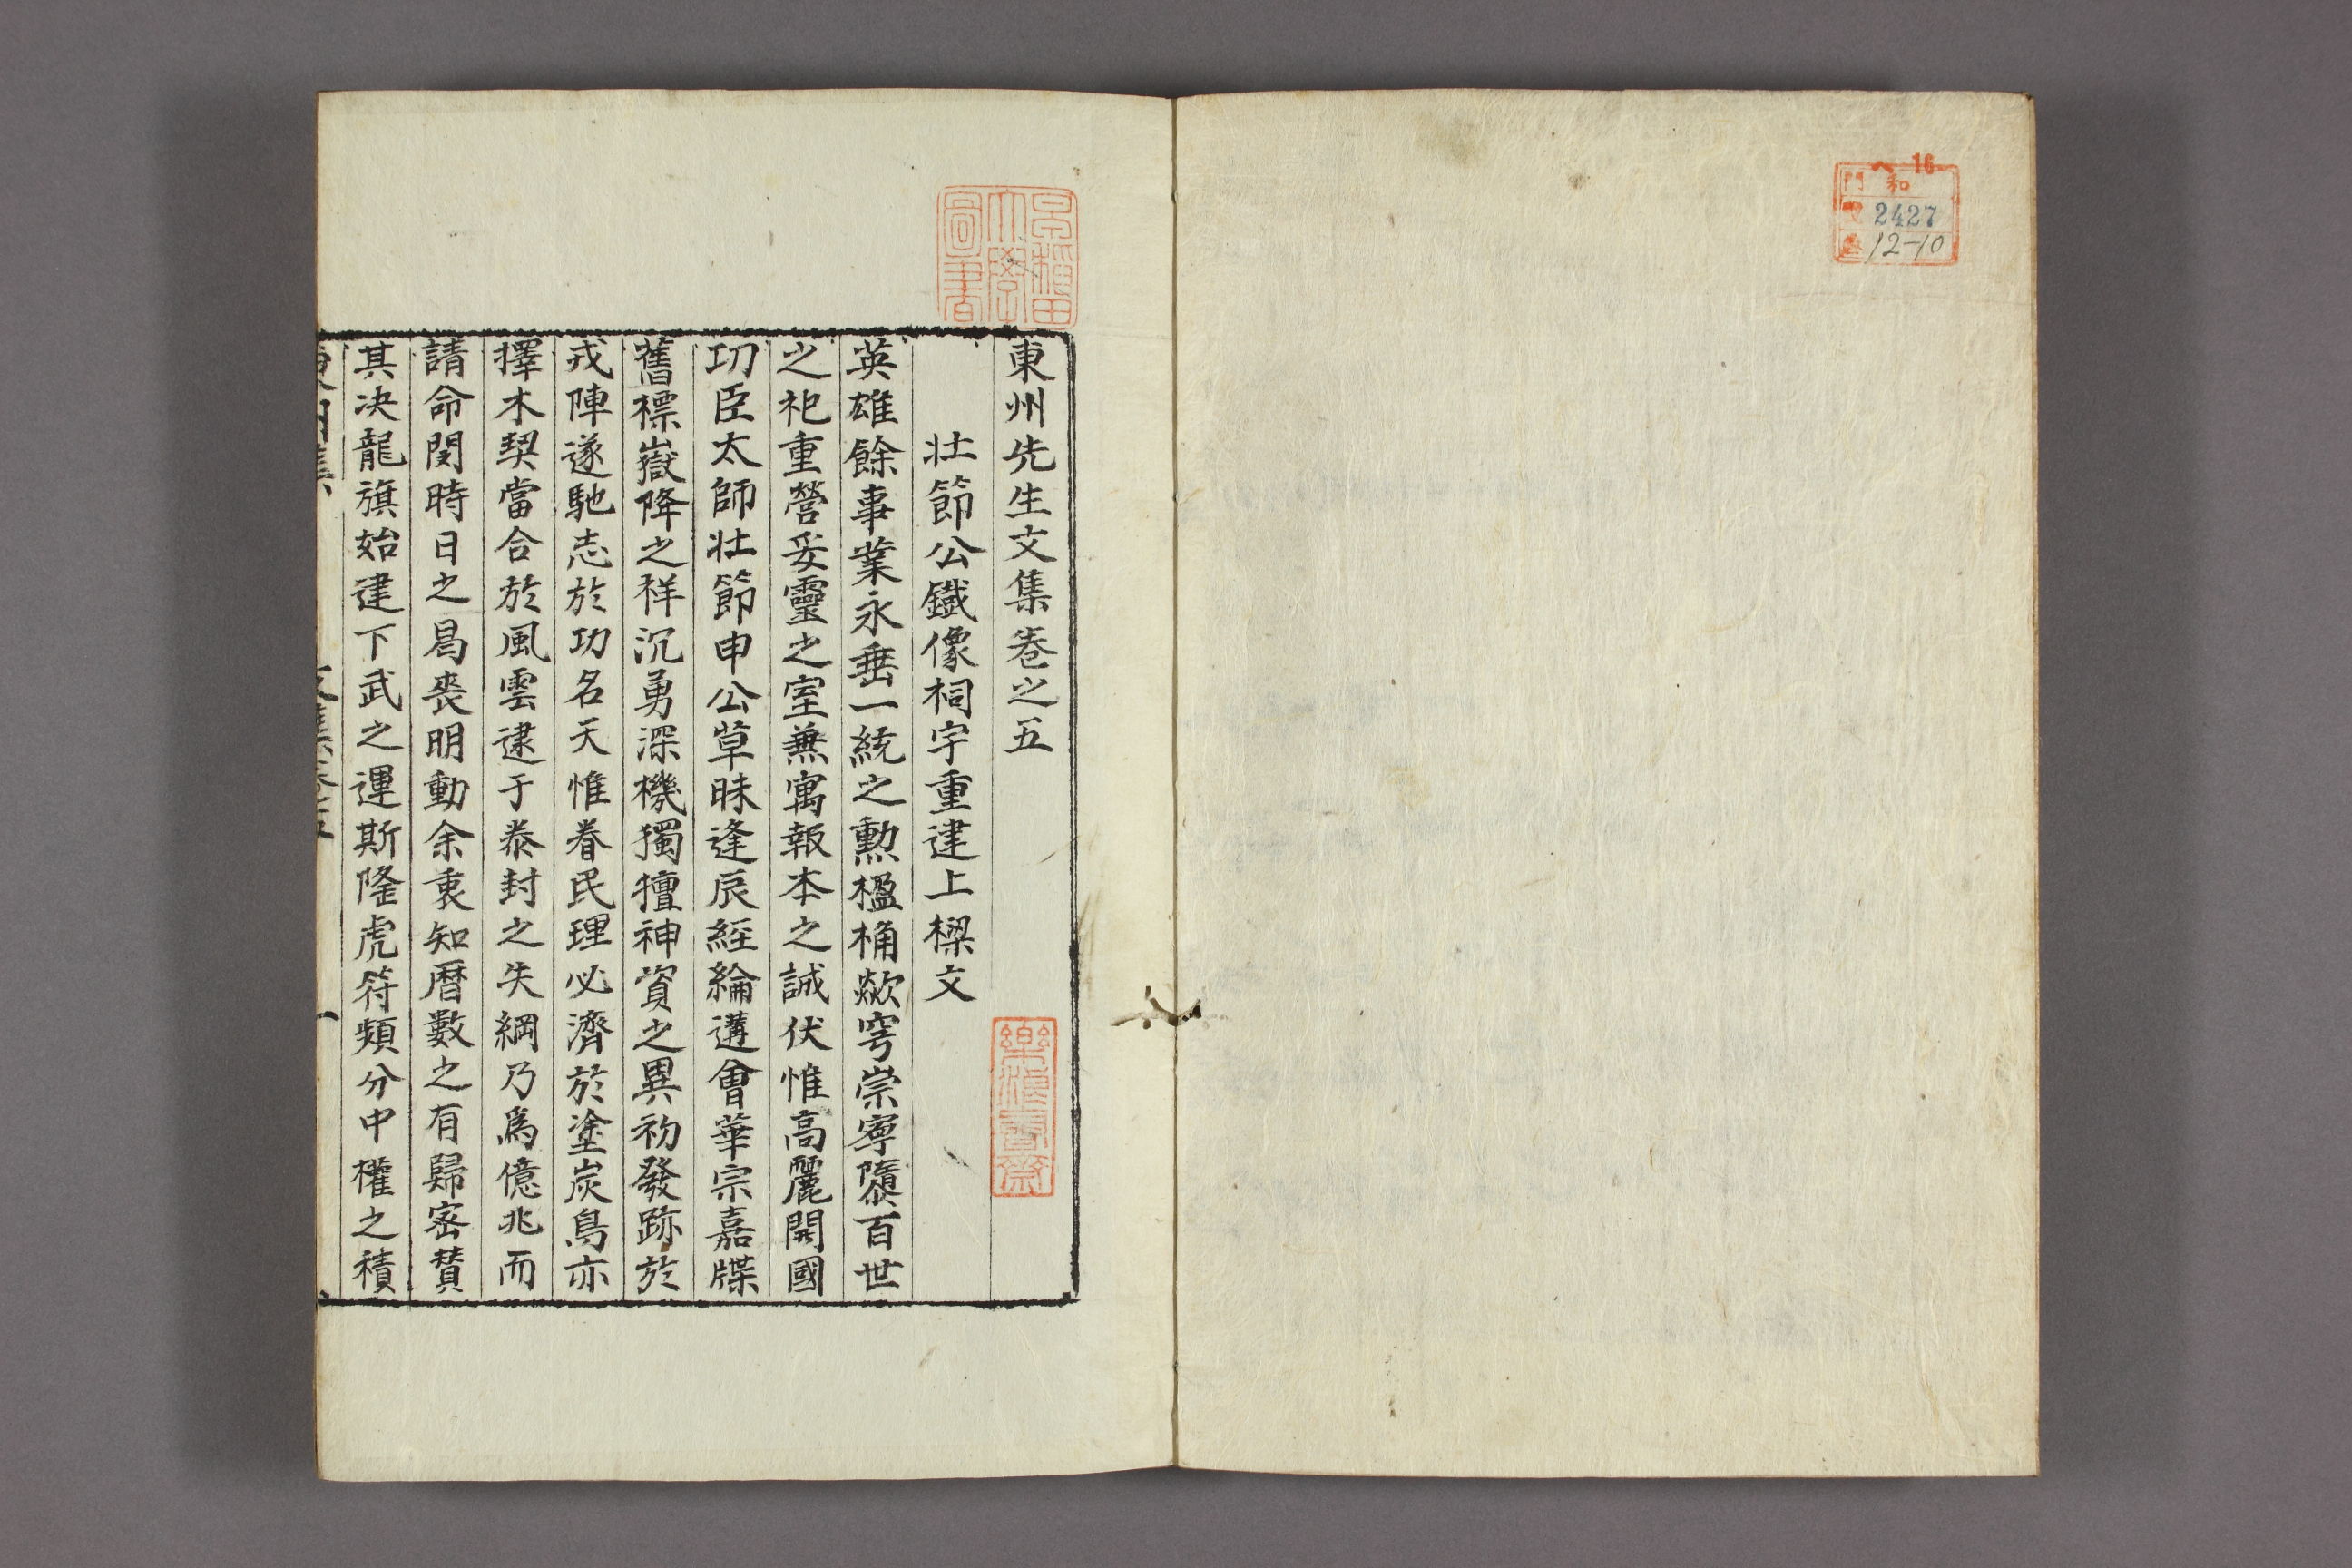 16
門 ヘ 和
號 2427
卷 12-10
早稲田
大學
圖書
東州先生文集卷之五
壯節公鐵像祠宇重建上樑文
英雄餘事業永垂一統之勳楹桷欻穹崇寧隳百世
之祀重營妥靈之室兼寓報本之誠伏惟高麗開國
功臣太師壯節申公草昧逢辰經綸遘會華宗嘉牒
舊標嶽降之祥沉勇深機獨擅神資之異初發跡於
戎陣遂馳志於功名天惟眷民理必濟於塗炭鳥亦
擇木契當合於風雲逮于泰封之失綱乃爲億兆而
請命閔時日之曷喪明動余衷知曆數之有歸密贊
其决龍旗始建下武之運斯隆虎符頻分中權之積
東州集 文集卷五 一